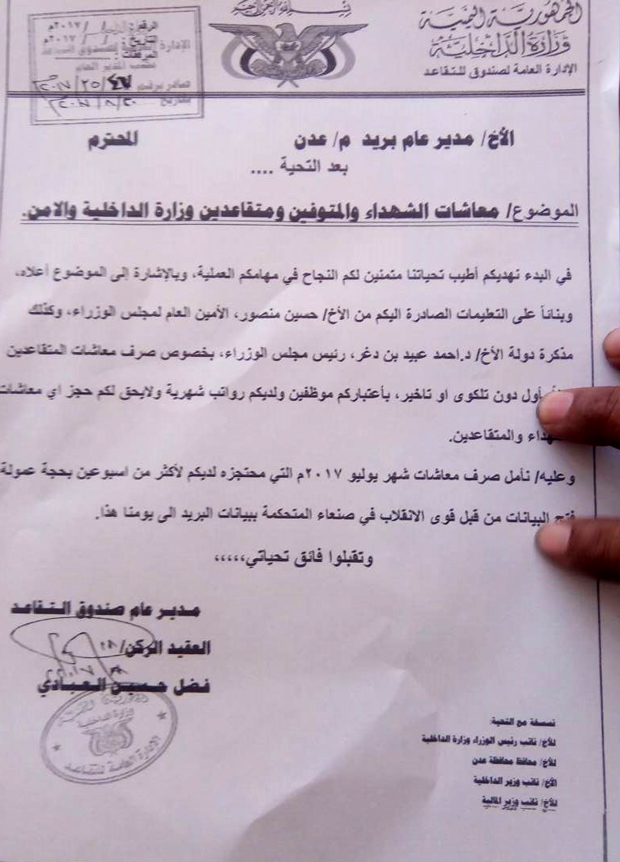 الجمهورية اليمنية
وزارة الداخلية
الإدارة العامة لصندوق التقاعد
الأخ/ مدير عام بريد م/ عدن المحترم
بعد التحية ....
الموضوع/ معاشات الشهداء والمتوفين ومتقاعدين وزارة الداخلية والامن.
في البدء نهديكم أطيب تحياتنا متمنين لكم النجاح في مهامكم العملية، وبالإشارة إلى الموضوع أعلاه،
وبناءاً على التعليمات الصادرة اليكم من الأخ/ حسين منصور، الأمين العام لمجلس الوزراء، وكذلك
مذكرة دولة الأخ/ د.احمد عبيد بن دغر، رئيس مجلس الوزراء، بخصوص صرف معاشات المتقاعدين
أول دون تلكوى او تاخير، بأعتباركم موظفين ولديكم رواتب شهرية ولايحق لكم حجز اي معاشات
والمتقاعدين.
وعليه/ نأمل صرف معاشات شهر يوليو ٢٠١٧م التي محتجزه لديكم لأكثر من اسبوعين بحجة عمولة
فتح البيانات من قبل قوى الانقلاب في صنعاء المتحكمة ببيانات البريد الى يومنا هذا.
وتقبلوا فائق تحياتي،،،،،
مدير عام صندوق التقاعد
العقيد الركن/
فضل حسين العبادي
وزارة الداخلية
الإدارة العامة للتقاعد
نسخة مع التحية
للأخ/ نائب رئيس الوزراء وزارة الداخلية
للأخ/ محافظ محافظة عدن
الأخ/ نائب وزير الداخلية
للأخ/ نائب وزير المالية